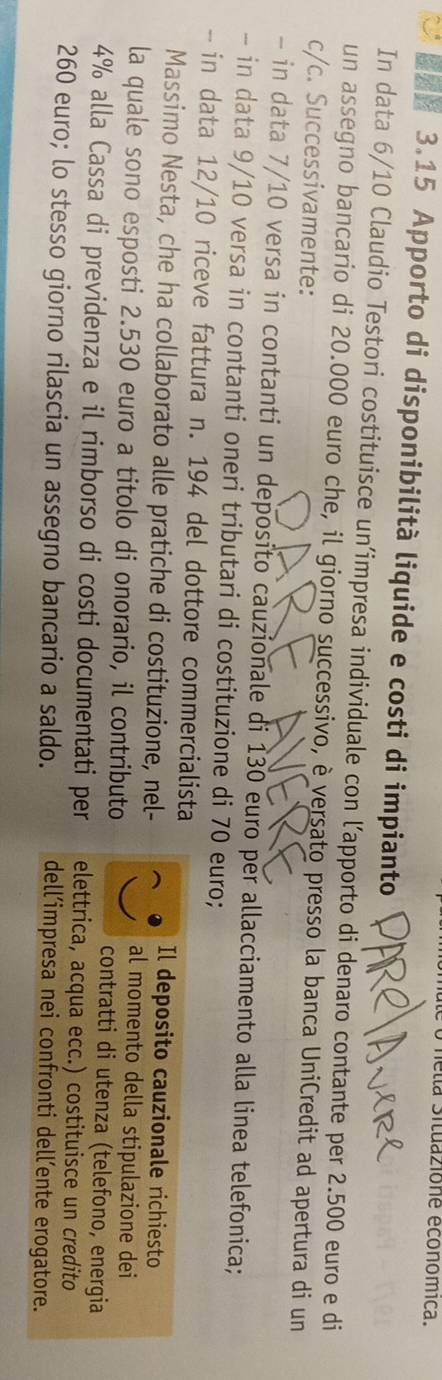 nella Situazione economica.
3.15 Apporto di disponibilità liquide e costi di impianto DARE/AVERE
In data 6/10 Claudio Testori costituisce un'impresa individuale con l'apporto di denaro contante per 2.500 euro e di
un assegno bancario di 20.000 euro che, il giorno successivo, è versato presso la banca UniCredit ad apertura di un
c/c. Successivamente:
DARE AVERE
– in data 7/10 versa in contanti un deposito cauzionale di 130 euro per allacciamento alla linea telefonica;
– in data 9/10 versa in contanti oneri tributari di costituzione di 70 euro;
– in data 12/10 riceve fattura n. 194 del dottore commercialista
Massimo Nesta, che ha collaborato alle pratiche di costituzione, nel-
la quale sono esposti 2.530 euro a titolo di onorario, il contributo
4% alla Cassa di previdenza e il rimborso di costi documentati per
260 euro; lo stesso giorno rilascia un assegno bancario a saldo.
Il deposito cauzionale richiesto
al momento della stipulazione dei
contratti di utenza (telefono, energia
elettrica, acqua ecc.) costituisce un credito
dell'impresa nei confronti dell'ente erogatore.